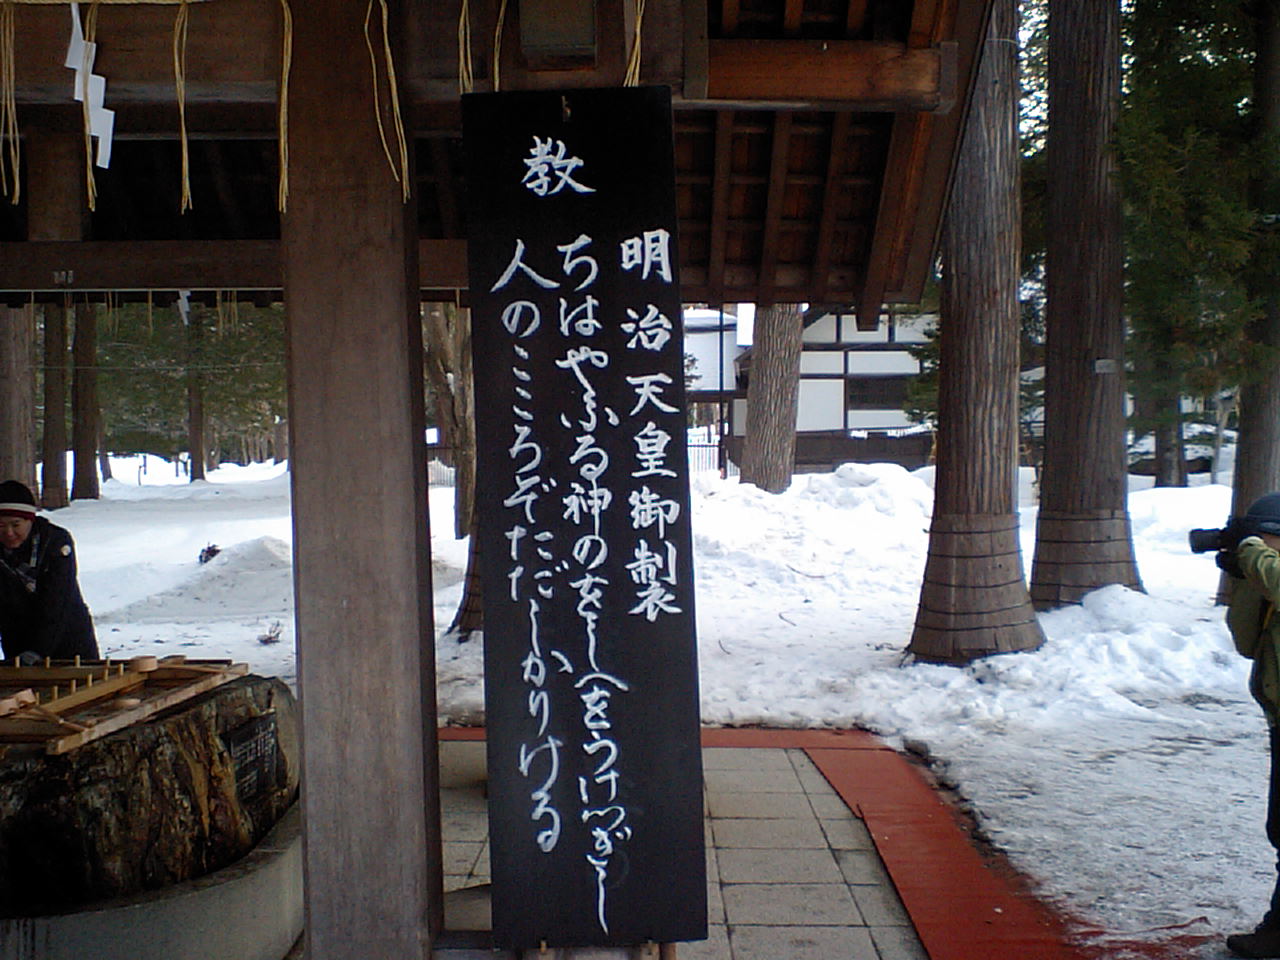 教
明治天皇御製
ちはやふる神のをしへをうけつぎし
人のこころぞたゞしかりける